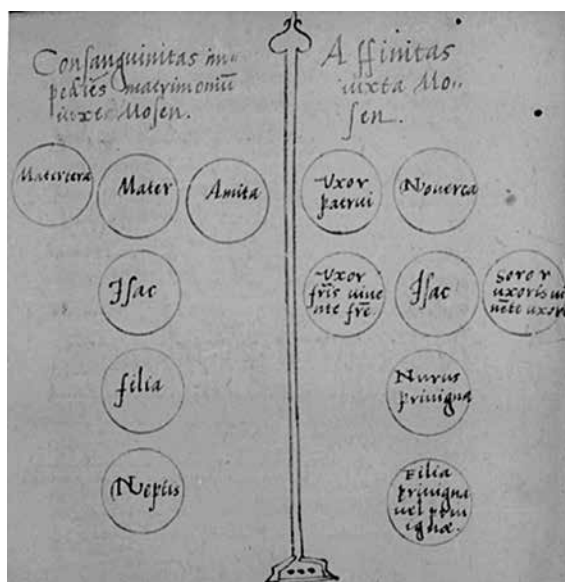 Consanguinitas im-
pediēs matrimoniū
iuxta Mosen.
Matertera
Mater
Amita
Isac
filia
Neptis
Affinitas
iuxta Mo-
sen.
Uxor
patrui
Noverca
Uxor
fr̄is uiue
nte fr̄e.
Isac
Soror
uxoris ui
uēte uxore
Nurus
priuigna
Filia
priuigni
uel priui
ignæ.